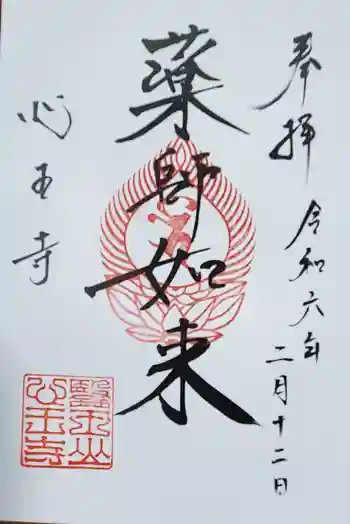 奉拝
令和六年
二月十二日
薬師如来
心王寺
醫王山
心王寺